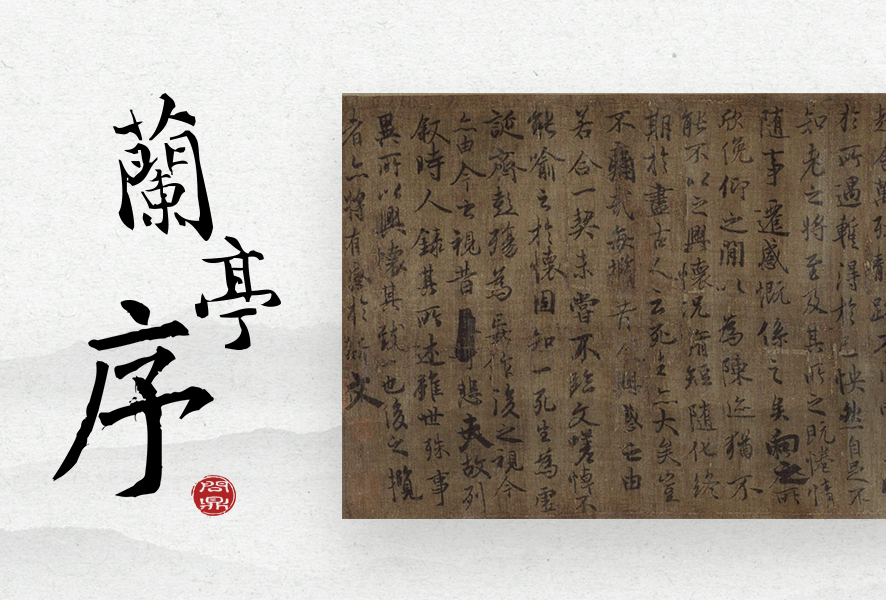 蘭亭序
問鼎
於所遇輒得於己快然自足不
知老之將至及其所之既惓情
隨事遷感慨係之矣向之所
欣俛仰之閒以為陳迹猶不
能不以之興懷況脩短隨化終
期於盡古人云死生亦大矣豈
不痛哉每攬昔人興感之由
若合一契未嘗不臨文嗟悼不
能喻之於懷固知一死生為虛
誕齊彭殤為妄作後之視今
亦由今之視昔悲夫故列
叙時人錄其所述雖世殊事
異所以興懷其致一也後之攬
者亦將有感於斯文